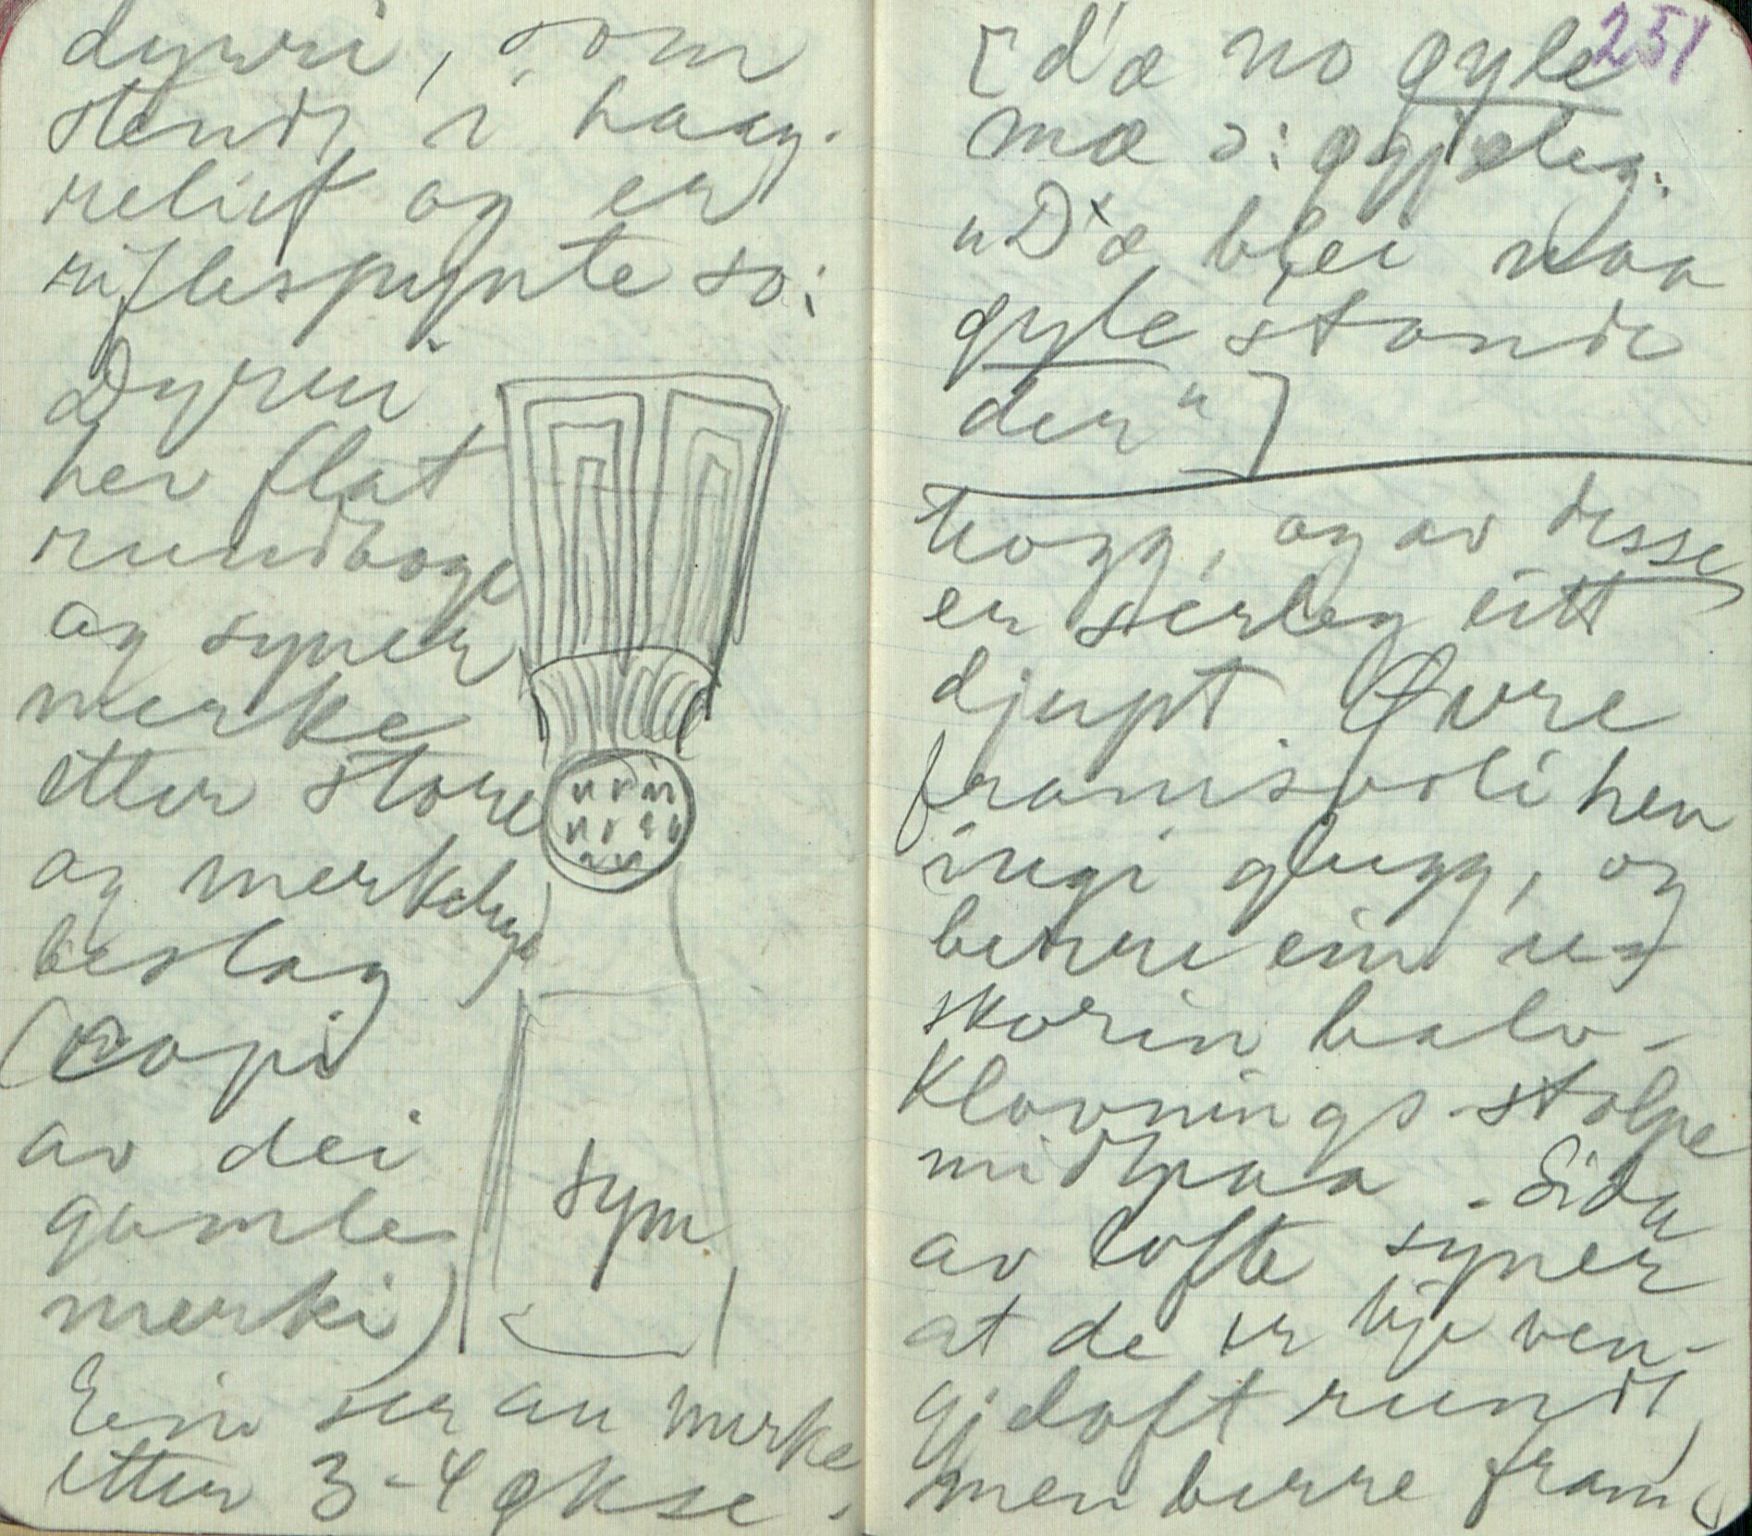 dyrri, som
stend i haag-
relief og er
riflespynte so:
Dyrri
her flat
rundboge
og syner
merke
etter store
og merkelege
beslag
(Copi
av dei
gamle
merki)
sym
Ein ser au merke
etter 3-4 økse-
251
[d'æ no gyle
mæ ɔ: gjeleg.
"D'æ blei naa
gyle stande
der"]
hogg, og av desse
er serleg eitt
djupt. Øvre
framsvoli hev
ingi glugg, og
berre ein ut-
skorin halv-
klovnings-stolpe
midtpaa. Sida
av lofte syner
at de er ikje ven-
gjeloft rundt,
men berre fram